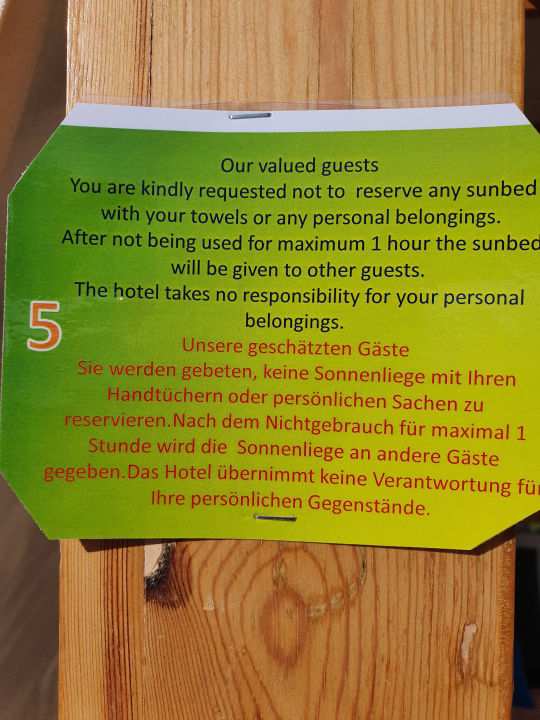 Our valued guests
You are kindly requested not to reserve any sunbed
with your towels or any personal belongings.
After not being used for maximum 1 hour the sunbed
will be given to other guests.
The hotel takes no responsibility for your personal
belongings.
5
Unsere geschätzten Gäste
Sie werden gebeten, keine Sonnenliege mit Ihren
Handtüchern oder persönlichen Sachen zu
reservieren.Nach dem Nichtgebrauch für maximal 1
Stunde wird die Sonnenliege an andere Gäste
gegeben.Das Hotel übernimmt keine Verantwortung für
Ihre persönlichen Gegenstände.